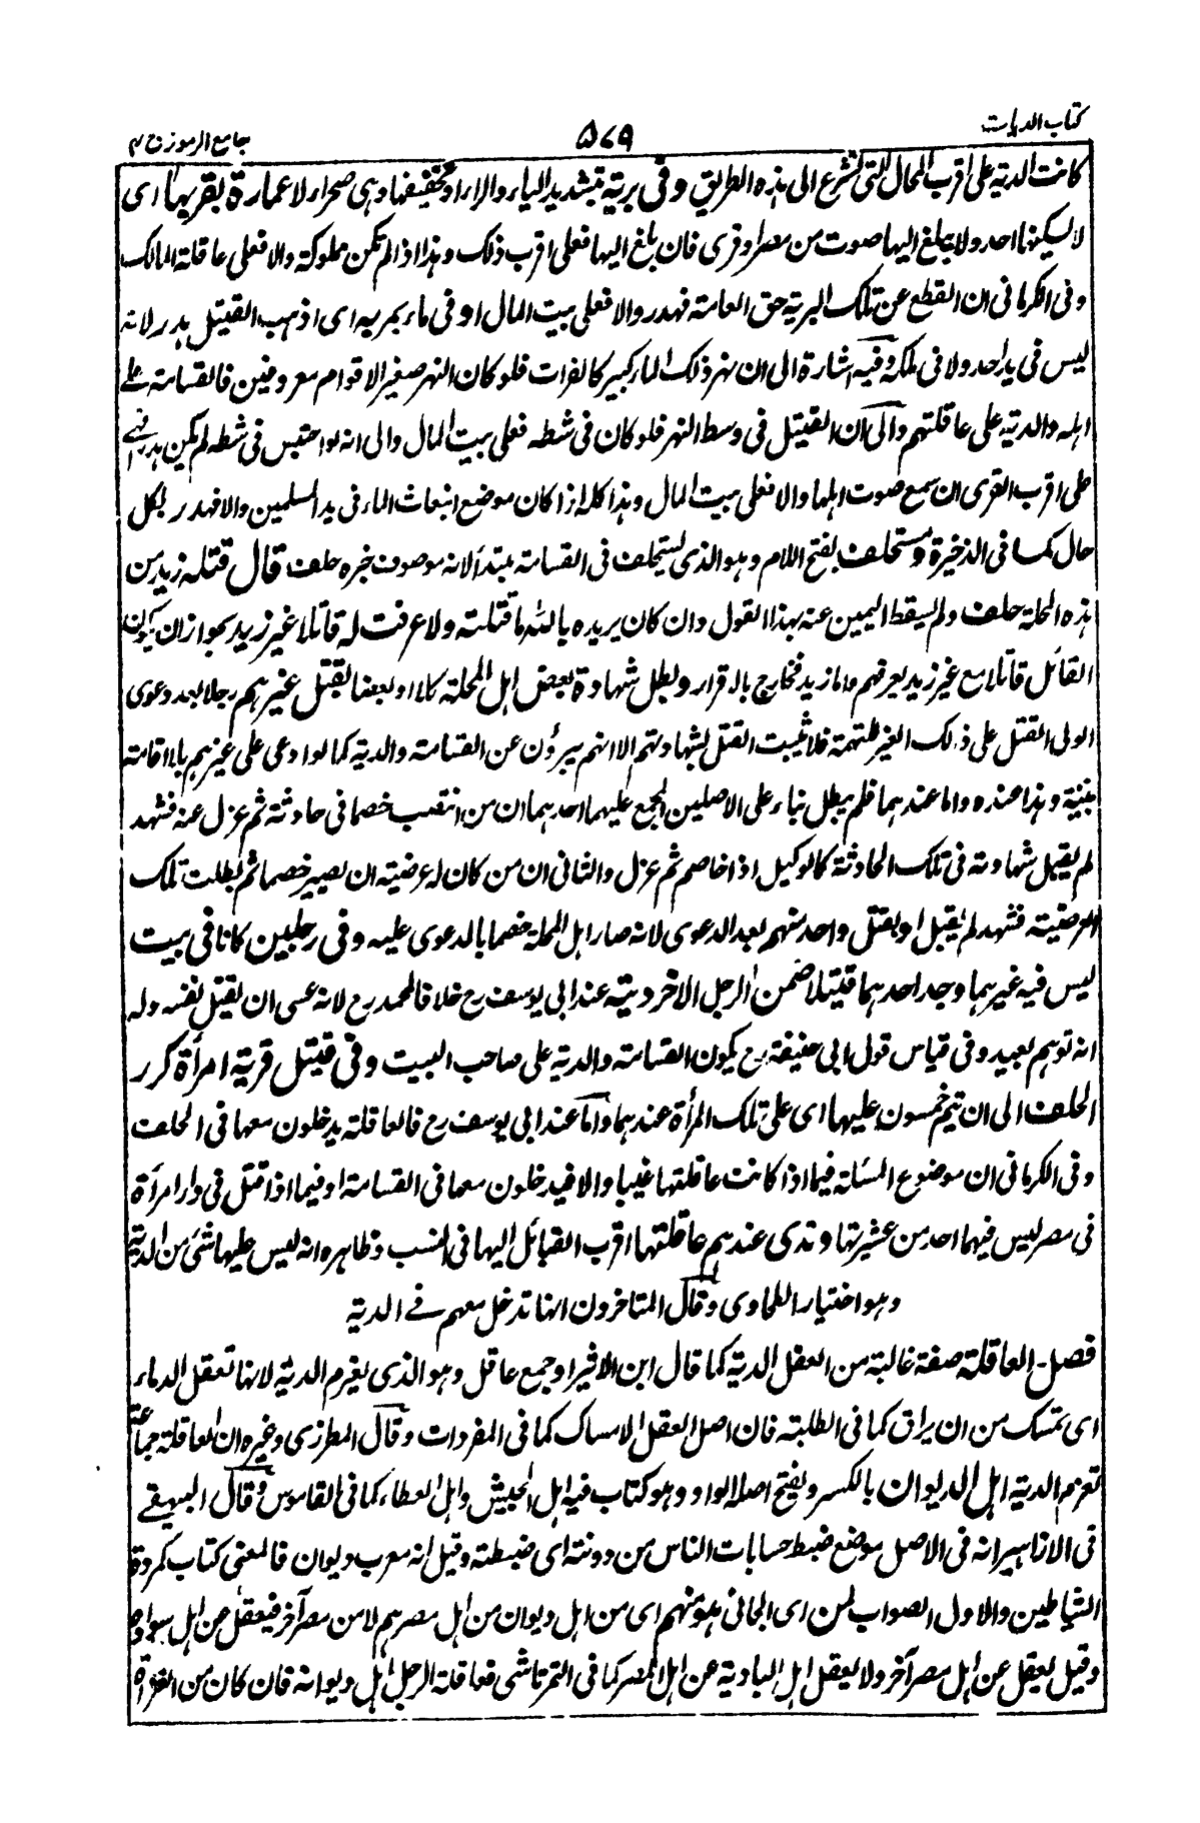 كتاب الديات
٥٧٩
جامع الرموز ج ٢
كانت الدية على اقرب المحال التى تشرع الى هذه الطريق وفى برية بتشديد الياء والراء او تخفيفها وهى صحراء لا عمارة بقربها اى
لا يسكنها احد ولا يبلغ اليها صوت من مصر او قرى فان بلغ اليها فعلى اقرب ذلك وهذا اذا لم تكن مملوكة والا فعلى عاقلة المالك
وفى الكرمانى ان انقطع عن تلك البرية حق العامة فهدر والا فعلى بيت المال او فى ماء يمر به اى اذهب القتيل هدر لانه
ليس فى يد احد ولا فى ملكه وفيه اشارة الى ان نهر ذلك الماء كبير كالفرات فلو كان النهر صغير الاقوام معروفين فالقسامة على
اهله والدية على عاقلتهم والى ان القتيل فى وسط النهر فلو كان فى شطه فعلى بيت المال والى انه لو احتبس فى شطه لم يكن هدرا
على اقرب القرى ان سمع صوت اهلها والا فعلى بيت المال وهذا كله اذا كان موضع انبعاث الماء فى يد المسلمين والا فهدر بكل
حال كما فى الذخيرة ومستحلف بفتح اللام وهو الذى يستحلف فى القسامة مبتدأ لانه موصوف خبره حلف قال قتله زيد من
هذه المحلة حلف ولم يسقط اليمين عنه بهذا القول وان كان يريده بالله ما قتلته ولا عرفت له قاتلا غير زيد بجواز ان يكون
القائل قاتلا مع غير زيد يعرفهم واما زيد فخارج بالاقرار وبطل شهادة بعض اهل المحلة كلا او بعضا بقتل غيرهم رجلا بعد دعوى
الولى القتل على ذلك الغير للتهمة فلا يثبت القتل بشهادتهم الا انهم يبرؤن عن القسامة والدية كما لو ادعى على غيرهم بلا اقامة
بينة وهذا عنده واما عندهما فلم يبطل بناء على الاصلين المجمع عليهما احدهما ان من انتصب خصما فى حادثة ثم عزل عنه فشهد
لم يقبل شهادته فى تلك الحادثة كالوكيل اذا خاصم ثم عزل والثانى ان من كان له عرضية ان يصير خصما ثم بطلت تلك
العرضية فشهد لم يقبل او بقتل واحد منهم بعد الدعوى لانه صار اهل المحلة خصما بالدعوى عليه وفى رجلين كانا فى بيت
ليس فيه غيرهما وجد احدهما قتيلا ضمن الرجل الاخر ديته عند ابى يوسف رح خلافا لمحمد رح لانه عسى ان يقتل نفسه وله
انه توهم بعيد وفى قياس قول ابى حنيفة رح يكون القسامة والدية على صاحب البيت وفى قتيل قرية امرأة كرر
الحلف الى ان تتم خمسون عليها اى على تلك المرأة عندهما واما عند ابى يوسف رح فالعاقلة يدخلون معها فى الحلف
وفى الكرمانى ان موضوع المسئلة فيما اذا كانت عاقلتها غيبا والا فيدخلون معها فى القسامة او فيما اذا قتل فى دار امرأة
فى مصر ليس فيها احد من عشيرتها وتدى عندهم عاقلتها اقرب القبائل اليها فى النسب وظاهره انه ليس عليها شئ من الدية
وهو اختيار الطحاوى وقال المتاخرون انها تدخل معهم فى الدية
فصل ـ العاقلة صفة غالبة من العقل الدية كما قال ابن الاثير او جمع عاقل وهو الذى يغرم الدية لانها تعقل الدماء
اى تمسك من ان يراق كما فى الطلبة فان اصل العقل الامساك كما فى المفردات وقال المطرزى وغيره ان العاقلة جماعة
تغرم الدية اهل الديوان بالكسر وبفتح اصله الواو وهو كتاب فيه اهل الجيش واهل العطاء كما فى القاموس وقال البيهقى
فى الازاهير انه فى الاصل موضع ضبط حسابات الناس من دونته اى ضبطته وقيل انه معرب ديوان فالمعنى كتاب كمردة
الشياطين والاول الصواب لمن اى الجانى هو منهم اى من اهل ديوان من اهل مصرهم لا من مصر آخر فيعقل عن اهل سواده
وقيل يعقل عن اهل مصر آخر ولا يعقل اهل البادية عن اهل المصر كما فى التمرتاشى فعاقلة الرجل اهل ديوانه فان كان من الغزاة